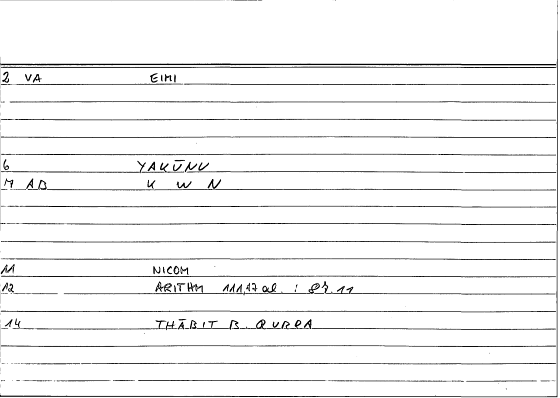 2 VA EIMI
6 YAKŪNU
M AB K W N
11 NICOM
12 ARITHM 111,17 al. : 87.11
14 THĀBIT B. QURRA